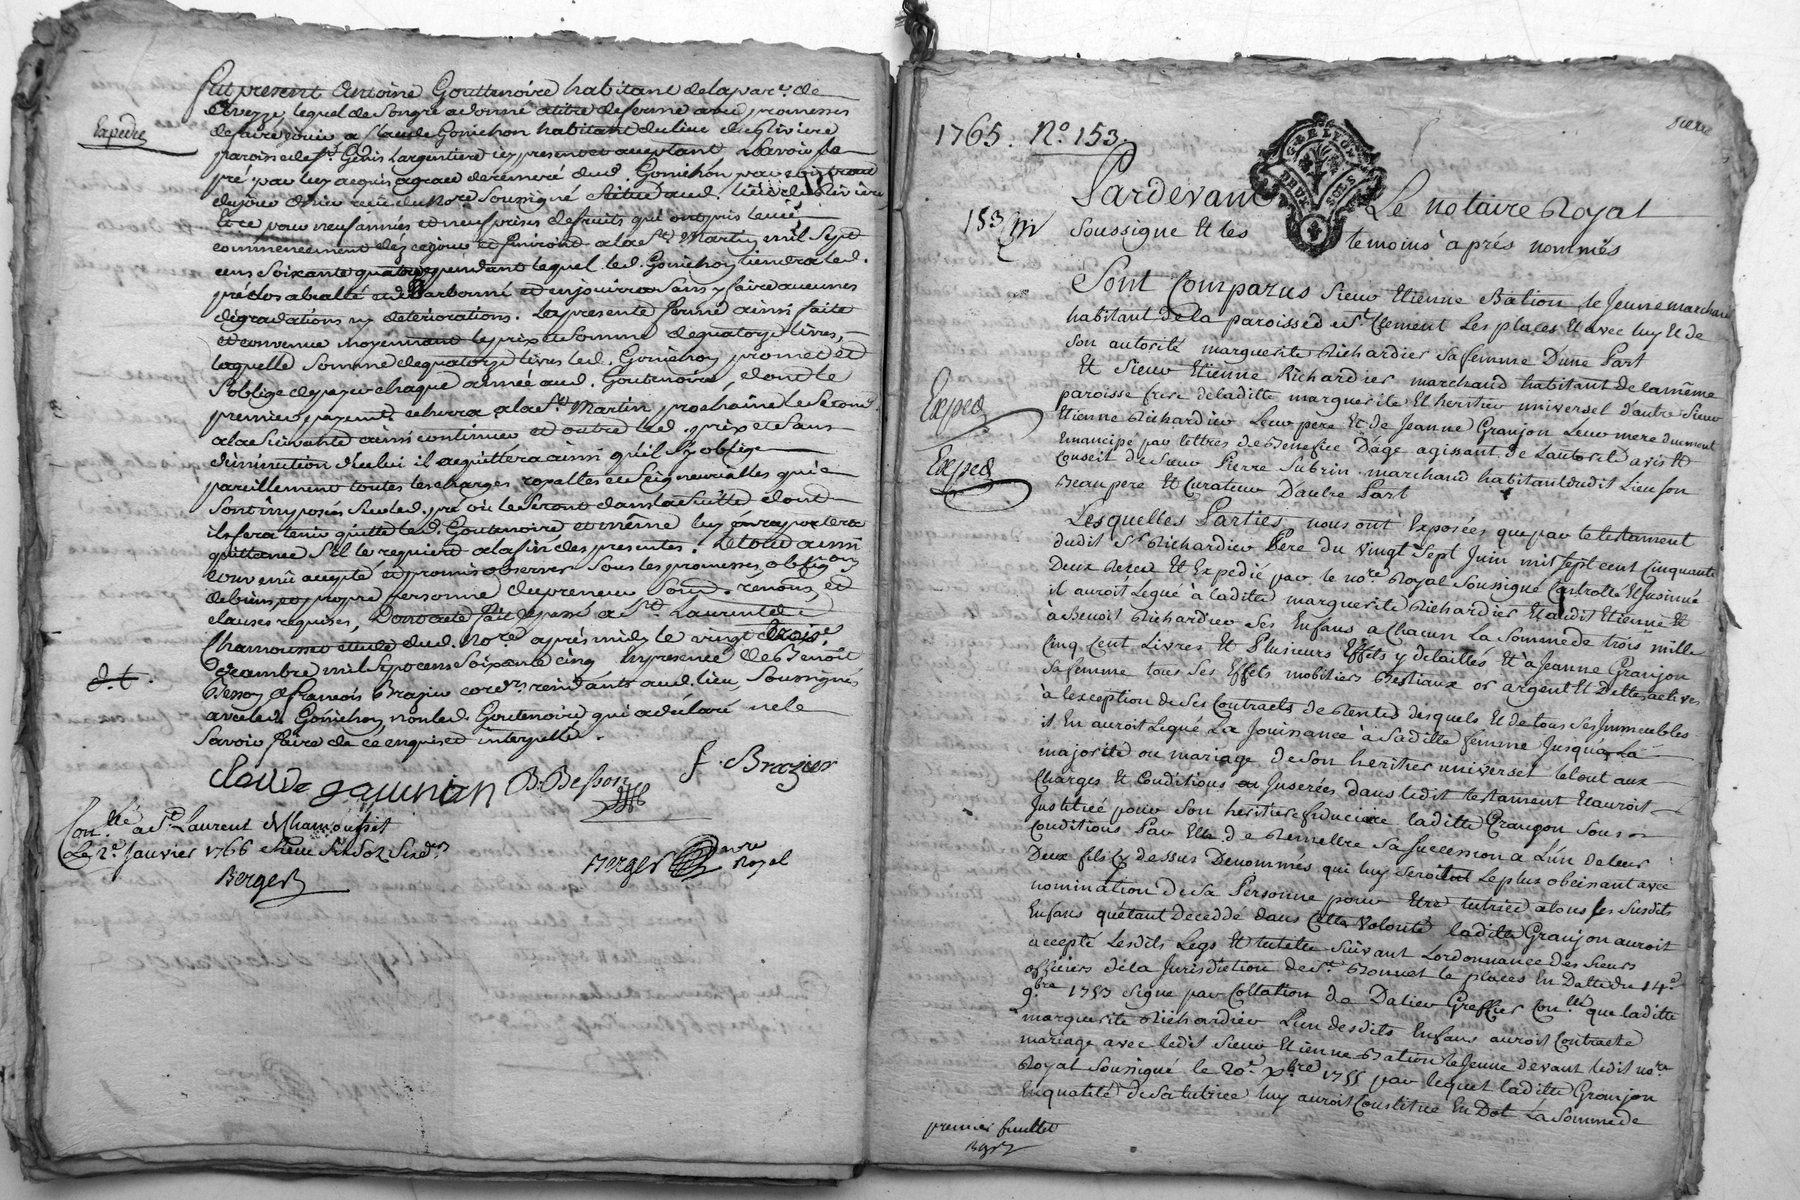 Fut present Antoine Gouttenoire habitant de la par.e de
lequel de son gré a donné a titre de ferme avec promesses
de faire jouir a Claude Gonichon habitant du lieu de Riviere
Expedie
paroisse de St. Genis Largentiere icy present et acceptant Savoir
pré par luy acquis a grace de remeré dud. Gonichon par
Nore Soussigné Situé aud. lieu de Riviere
Et ce pour neuf années et neuf prises de fruits qui
commenceront dez ce jour et finiront a la St Martin mil Sept
cens Soixante quatorze pendant lequel led. Gonichon tiendra led.
pré clos et en jouira Sans y faire aucunes
degradations ny deteriorations. La presente ferme ainsi faite
et convenue moyennant le prix et Somme de quatorze livres,
laquelle Somme de quatorze livres led. Gonichon promet et
S'oblige de payer chaque année aud. Goutenoire, dont le
premier payement echerra a la St Martin prochaine le Second
a la Suivante ainsi continuer et outre led. prix et Sans
diminution d'icelui il acquittera ainsi qu'il S'y oblige
pareillement toutes les charges royalles et Seigneurialles qui
Sont imposées Sur led. pré ou le Seront dans la Suitte dont
il fera tenir quitte led. Goutenoire et même luy en raportera
quittance S'il le requiert a la fin des presentes. Le tout ainsi
convenû accepté et promis observer Sous les promesses, oblig.on
de biens, et propre personne du preneur Soum. renons, et
clauses requises, Dont acte fait et passé a St Laurent de
Chamousset étude dud. Nore après midy le vingt trois
Decembre mil Sept cens Soixante cinq En presence de Benoît
d. t.
Besson et françois Brazier cord.rs residants aud. lieu, Soussignés
avec led. Gonichon, non led. Goutenoire qui a declaré ne le
Savoir faire de ce enquis et interpellé.
B. Besson
f. Brazier
Con.llé a St Laurent de Chamousset
Le 2e Janvier 1766
Berger
Berger nore Royal
1765. No. 153.
GEN. DE LYON
DEUX SOLS
Pardevant Le notaire Royal
153
Soussigné Et les temoins après nommés
Sont Comparus Sieur Etienne Bation le Jeune marchand
habitant de la paroisse de St. Clement Les places Et avec luy Et de
Son autorité marguerite Richardier Sa femme D'une Part
Et Sieur Etienne Richardier marchand habitant de la même
Exped
paroisse frere de laditte marguerite Et heritier universel d'autre Sieur
Etienne Richardier Leur pere Et de Jeanne Granjon Leur mere duement
Emancipé par lettres de Benefice D'age agissant de L'autorité avis Et
Exped
Conseil de Sieur Pierre Subrin marchand habitant dudit Lieu son
Beau pere Et Curateur D'autre Part
Lesquelles Parties nous ont Exposées que par le testament
dudit Sr Richardier Pere du Vingt Sept Juin mil Sept cent Cinquante
Deux Receu Et Expedié par le nore Royal Soussigné Controllé Et Insinué
il auroit Legué à laditte marguerite Richardier Et audit Etienne Et
à Benoît Richardier Ses Enfans a Chacun La Somme de trois mille
Cinq Cent Livres Et Plusieurs Effets y detaillés Et à Jeanne Granjon
Sa femme tous Ses Effets mobiliers Bestiaux or argent Et Dettes actives
à lexception de Ses Contracts de Rentes desquels Et de tous Ses Immeubles
il En auroit Legué La Jouissance à Saditte femme Jusqu'à La
majorité ou mariage de Son heritier universel Le tout aux
Charges Et Conditions Inserées dans ledit testament Et auroit
Institué pour Son heritiere fiduciaire laditte Granjon Sous
Conditions Par Elle de Remettre Sa Succession a L'un de leur
Deux fils Cy dessus Denommés qui luy Seroient Le plus obeissant avec
nomination de Sa Personne pour Etre tutrice a tous les Susdits
Enfans qu'étant Decedé dans cette Volonté laditte Granjon auroit
accepté Lesdits Legs Et tutelle Suivant Lordonnance des Sieurs
officiers de la Jurisdiction de St. Bonnet le places En Datte du 14e
9bre 1753 Signé par Collation de Dalier Greffier Con.llé que laditte
marguerite Richardier L'un desdits Enfans auroit Contracté
mariage avec ledit Sieur Etienne Bation le Jeune devant ledit nore
Royal Soussigné le 20e Xbre 1755 par lequel laditte Granjon
En qualité de Sa tutrice luy auroit Constitué En Dot La Somme de
premier feuillet